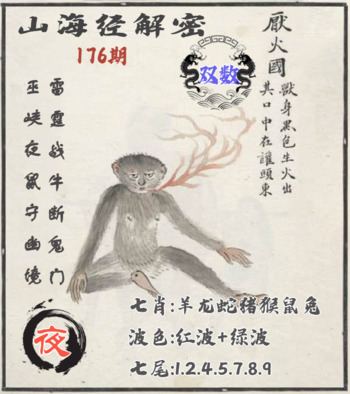 山海经解密
176期
双数
厭火國
獸身黑色生火出
其口中在讙頭東
雷霆战牛断鬼门
巫峡夜鼠守幽境
夜
七肖:羊龙蛇猪猴鼠兔
波色:红波+绿波
七尾:1.2.4.5.7.8.9